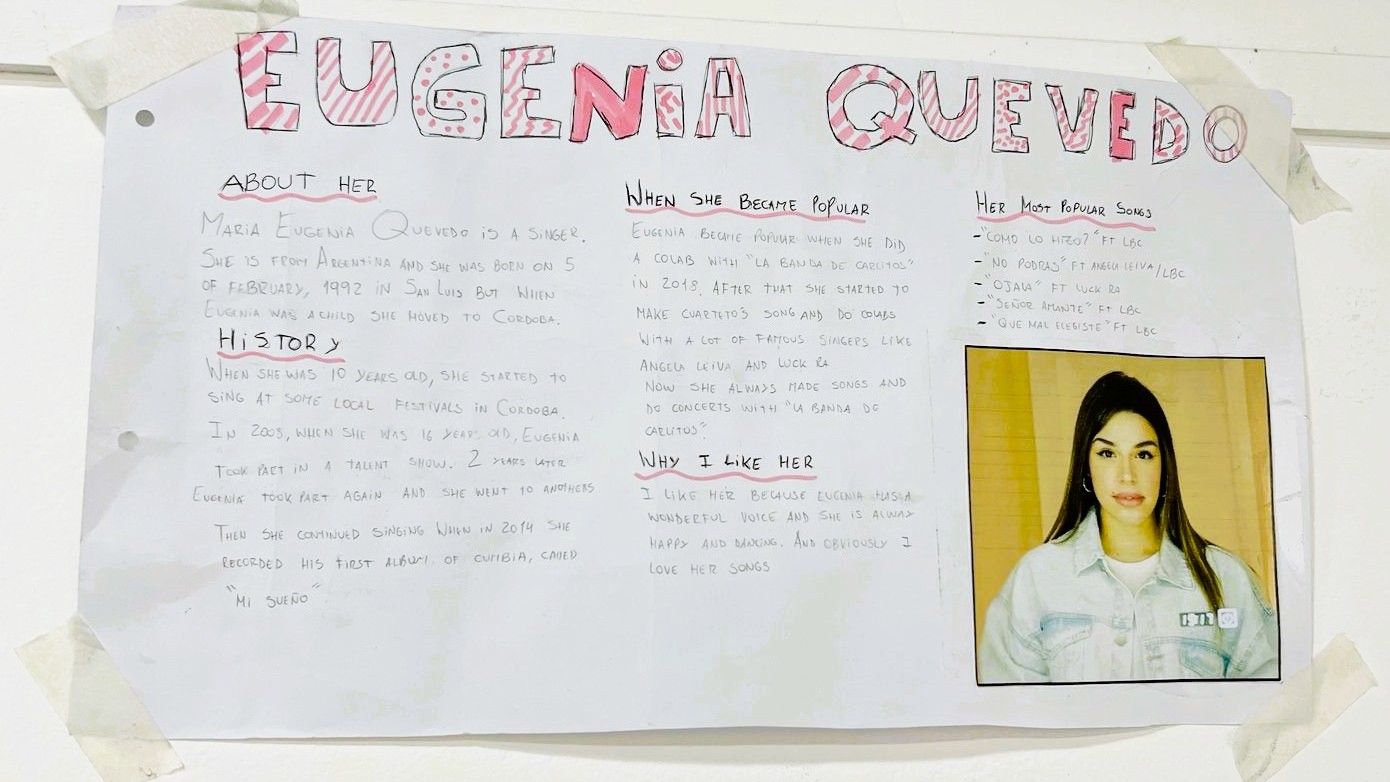 EUGENIA QUEVEDO
ABOUT HER
MARIA EUGENIA QUEVEDO IS A SINGER.
SHE IS FROM ARGENTINA AND SHE WAS BORN ON 5
OF FEBRUARY, 1992 IN SAN LUIS BUT WHEN
EUGENIA WAS A CHILD SHE MOVED TO CORDOBA.
HISTORY
WHEN SHE WAS 10 YEARS OLD, SHE STARTED TO
SING AT SOME LOCAL FESTIVALS IN CORDOBA.
IN 2008, WHEN SHE WAS 16 YEARS OLD, EUGENIA
TOOK PART IN A TALENT SHOW. 2 YEARS LATER
EUGENIA TOOK PART AGAIN AND SHE WENT TO ANOTHERS
THEN SHE CONTINUED SINGING WHEN IN 2014 SHE
RECORDED HIS FIRST ALBUM OF CUMBIA, CALLED
"MI SUEÑO"
WHEN SHE BECAME POPULAR
EUGENIA BECAME POPULAR WHEN SHE DID
A COLAB WITH "LA BANDA DE CARLITOS"
IN 2018. AFTER THAT SHE STARTED TO
MAKE CUARTETO'S SONG AND DO COLABS
WITH A LOT OF FAMOUS SINGERS LIKE
ANGELA LEIVA AND LUCK RA
NOW SHE ALWAYS MADE SONGS AND
DO CONCERTS WITH "LA BANDA DE
CARLITOS".
WHY I LIKE HER
I LIKE HER BECAUSE EUGENIA HAS A
WONDERFUL VOICE AND SHE IS ALWAY
HAPPY AND DANCING. AND OBVIOUSLY I
LOVE HER SONGS
HER MOST POPULAR SONGS
- "COMO LO HIZO?" FT LBC
- "NO PODRAS" FT ANGELA LEIVA/LBC
- "OJALA" FT LUCK RA
- "SEÑOR AMANTE" FT LBC
- "QUE MAL ELEGISTE" FT LBC